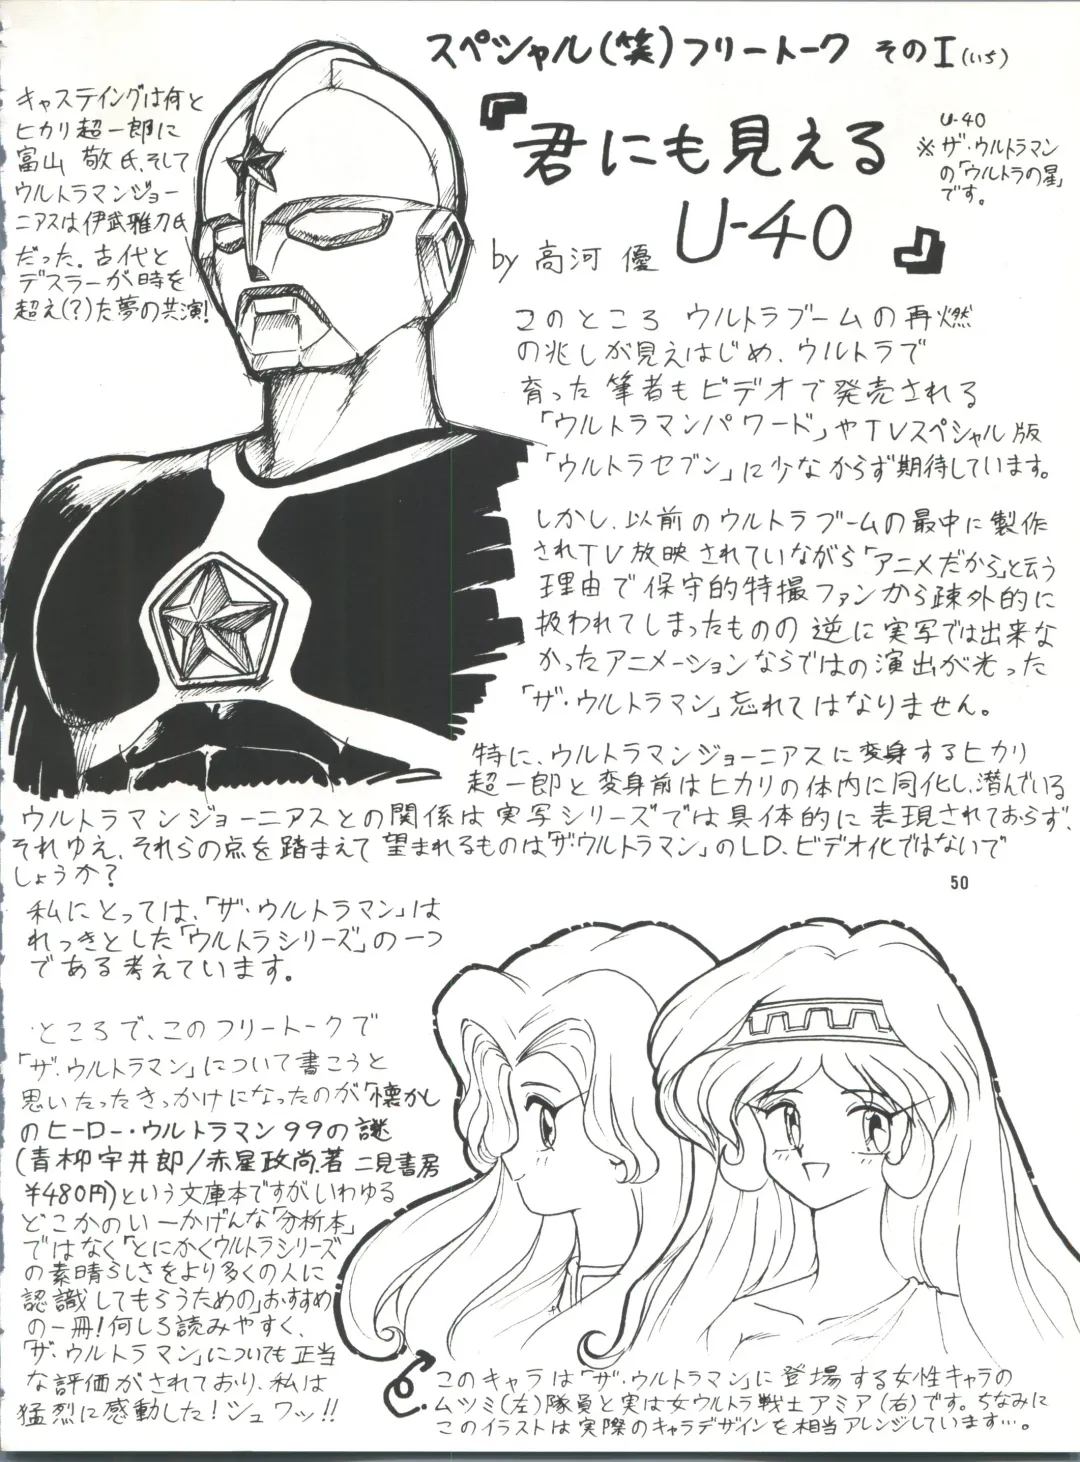 スペシャル(笑)フリートーク そのI(いち)
『君にも見える
U-40』
by 高河 優
U-40
※ザ・ウルトラマン
の「ウルトラの星」
です。
キャスティングは何と
ヒカリ超一郎に
富山 敬氏、そして
ウルトラマンジョー
ニアスは伊武雅刀氏
だった。古代と
デスラーが時を
超え(?)た夢の共演!
このところ ウルトラブームの再燃
の兆しが見えはじめ、ウルトラで
育った筆者もビデオで発売される
「ウルトラマンパワード」やTVスペシャル版
「ウルトラセブン」に少なからず期待しています。
しかし、以前のウルトラブームの最中に製作
されTV放映されていながら「アニメだから」と云う
理由で保守的特撮ファンから疎外的に
扱われてしまったものの逆に実写では出来な
かったアニメーションならではの演出が光った
「ザ・ウルトラマン」忘れてはなりません。
特に、ウルトラマンジョーニアスに変身するヒカリ
超一郎と変身前はヒカリの体内に同化し、潜んでいる
ウルトラマンジョーニアスとの関係は実写シリーズでは具体的に表現されておらず、
それゆえ、それらの点を踏まえて望まれるものは「ザ・ウルトラマン」のLD、ビデオ化ではないで
しょうか?
50
私にとっては、「ザ・ウルトラマン」は
れっきとした「ウルトラシリーズ」の一つ
である考えています。
ところで、このフリートークで
「ザ・ウルトラマン」について書こうと
思いたったきっかけになったのが「懐かし
のヒーロー・ウルトラマン99の謎
(青柳宇井郎/赤星政尚.著 二見書房
¥480円)という文庫本ですがいわゆる
どこかのいーかげんな「分析本」
ではなく「とにかくウルトラシリーズ
の素晴らしさをより多くの人に
認識してもらうための」おすすめ
の一冊!何しろ読みやすく、
「ザ・ウルトラマン」についても正当
な評価がされており、私は
猛烈に感動した!シュワッ!!
このキャラは「ザ・ウルトラマン」に登場する女性キャラの
ムツミ(左)隊員と実は女ウルトラ戦士アミア(右)です。ちなみに
このイラストは実際のキャラデザインを相当アレンジしています…。